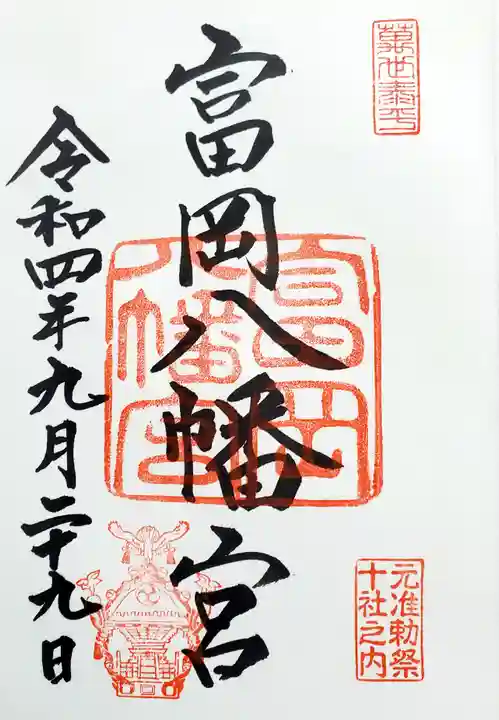 萬世泰平
富岡八幡宮
富岡八幡宮
元准勅祭
十社之内
令和四年九月二十九日